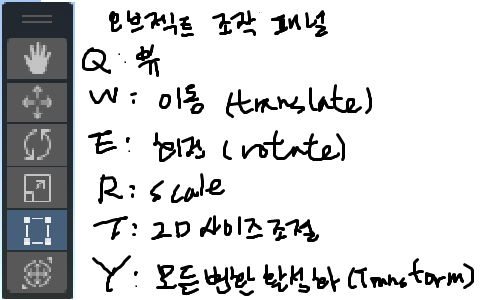 오브젝트 조작 패널
Q: 뷰
W: 이동 (translate)
E: 회전 (rotate)
R: scale
T: 2D 사이즈조절
Y: 모든 변환 활성화 (Transform)